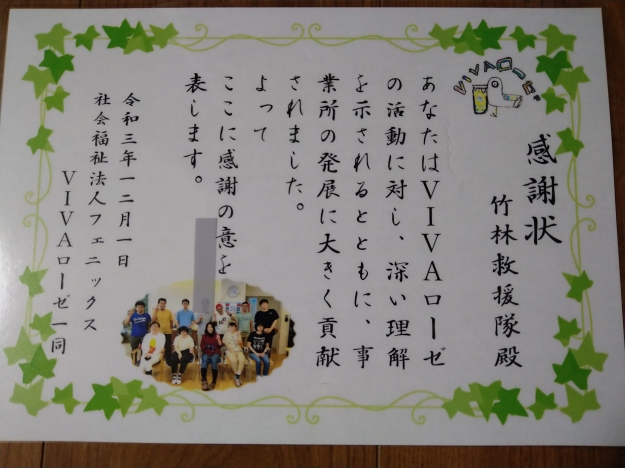 VIVAローゼ
感謝状
竹林救援隊殿
あなたはVIVAローゼ
の活動に対し、深い理解
を示されるとともに、事
業所の発展に大きく貢献
されました。
よって
ここに感謝の意を
表します。
令和三年一二月一日
社会福祉法人フェニックス
VIVAローゼ一同